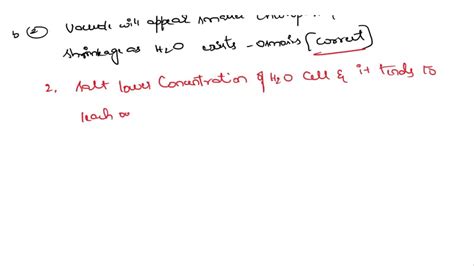 b (2) Vacuole will appear smaller
shrinkage as H2O exits - osmosis (correct)
2. Salt lowers Concentration of H2O Cell & it tends to
leach o